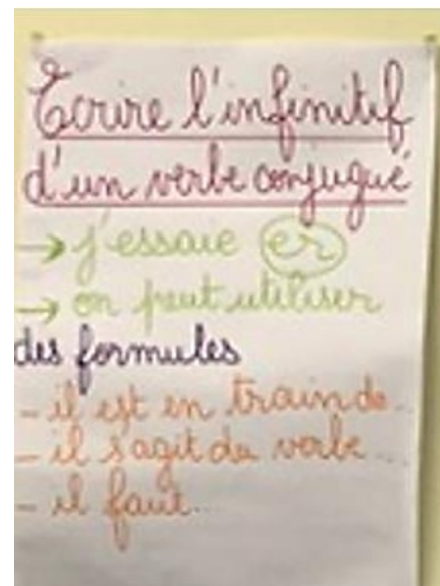 Ecrire l'infinitif
d'un verbe conjugué
→ j'essaie er
→ on peut utiliser
des formules
- il est en train de...
- il s'agit du verbe...
- il faut...